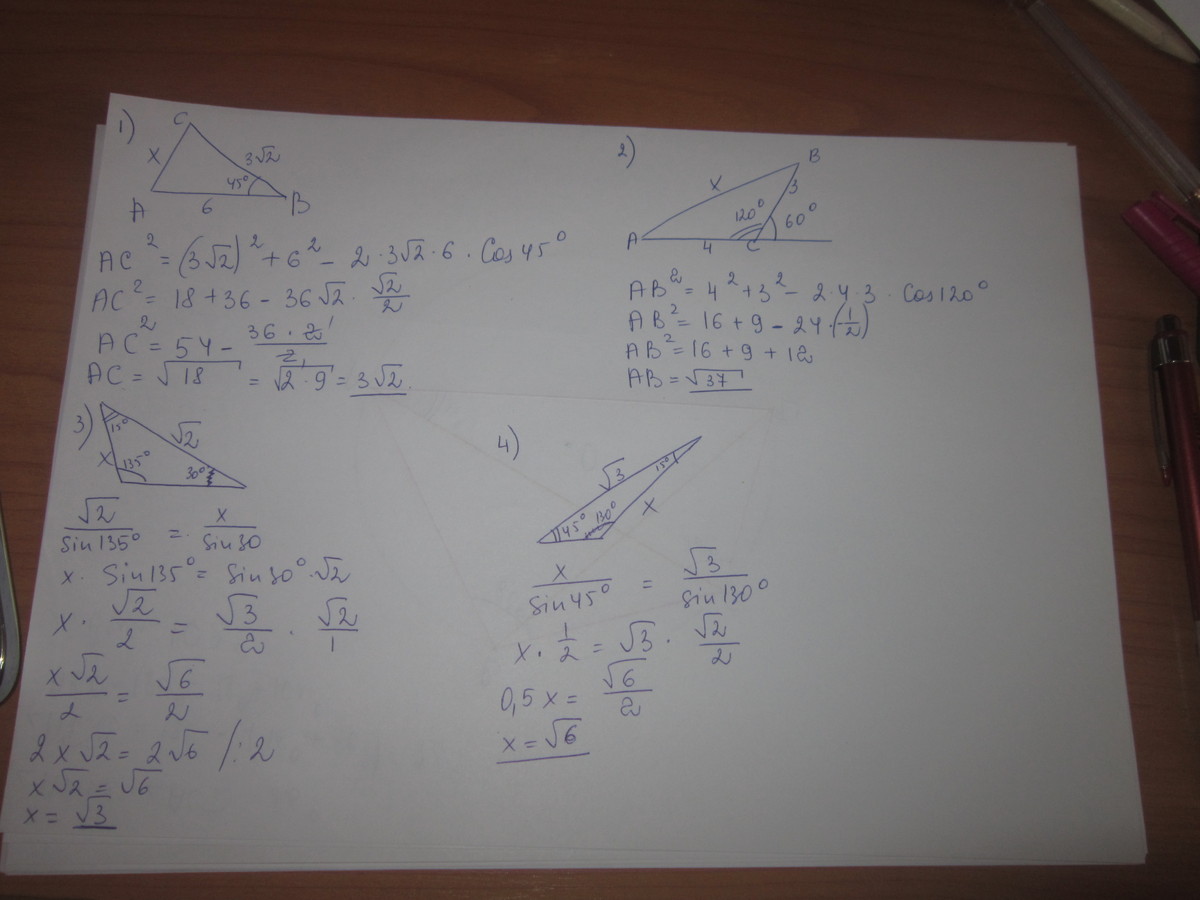 1)
C
x
3√2
45°
A
6
B
AC² = (3√2)² + 6² - 2 · 3√2 · 6 · Cos 45°
AC² = 18 + 36 - 36√2 · √2/2
AC² = 54 - 36 · 2/2
AC = √18 = √2 · 9 = 3√2.
2)
B
x
3
120°
60°
A
4
C
AB² = 4² + 3² - 2 · 4 · 3 · Cos 120°
AB² = 16 + 9 - 24 · (1/2)
AB² = 16 + 9 + 12
AB = √37
3)
15°
√2
x
135°
30°
√2/sin 135° = x/sin 30
x · Sin 135° = Sin 30° · √2
x · √2/2 = √3/2 · √2/1
x√2/2 = √6/2
2x√2 = 2√6 /:2
x√2 = √6
x = √3
4)
√3
15°
45°
130°
x
x/sin 45° = √3/sin 130°
x · 1/2 = √3 · √2/2
0,5x = √6/2
x = √6